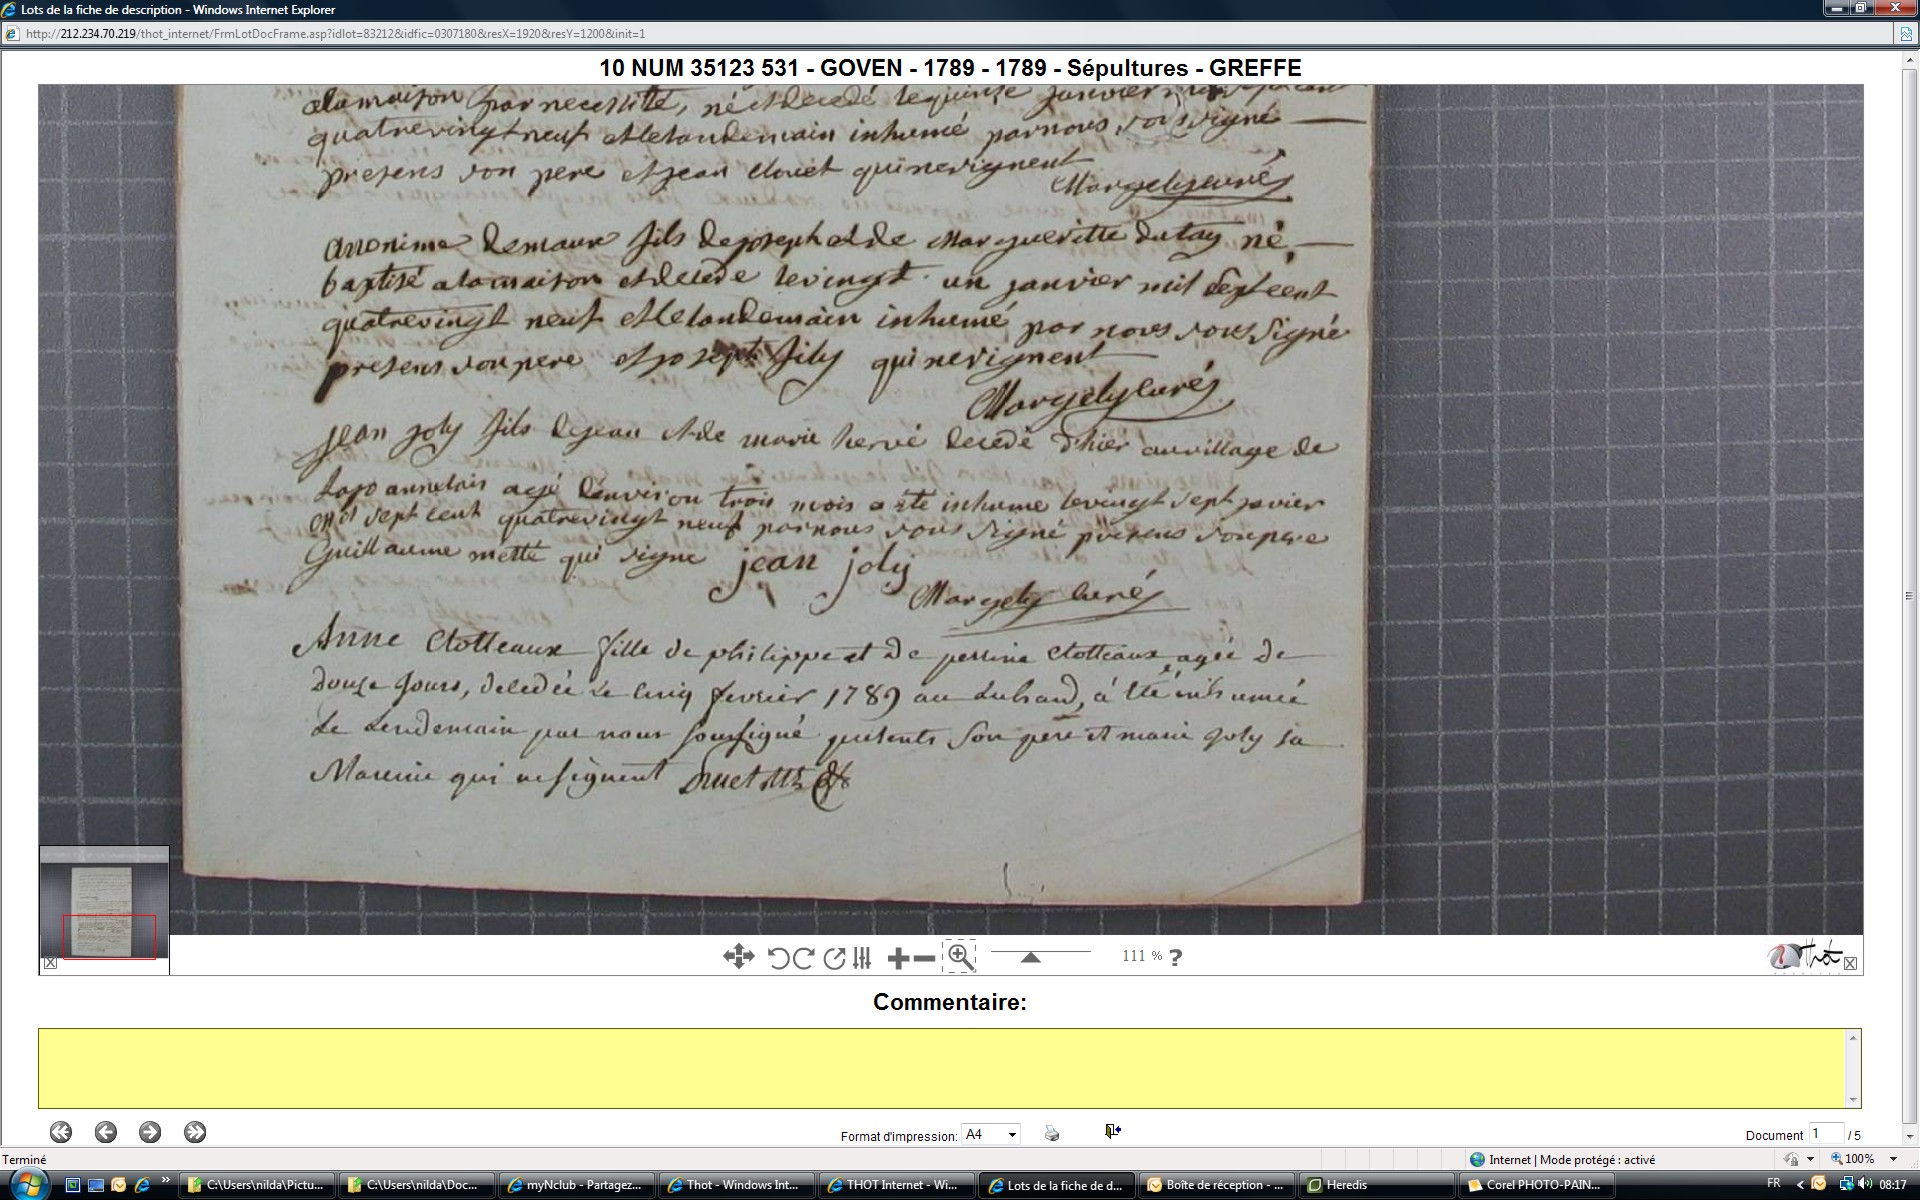 Lots de la fiche de description - Windows Internet Explorer
http://212.234.70.219/thot_internet/FrmLotDocFrame.asp?idlot=83212&idfic=0307180&resX=1920&resY=1200&init=1
10 NUM 35123 531 - GOVEN - 1789 - 1789 - Sépultures - GREFFE
alamaison par necessité, né et decedé lequinze janvier
quatrevingt neuf et lelandemain inhumé par nous sousigné
presens son pere et jean qui nesignent
Margely curé
anonime demaux fils de joseph et de Margueritte dutay né,
baptisé alamaison et decedé levingt un janvier mil sept cent
quatrevingt neuf et lelandemain inhumé par nous sousSigné
presens son pere et joseph fily qui nesignent
Margely curé
Jean Joly fils dejean et de marie hervé decedé d'hier auvillage de
agé denviron trois mois a été inhumé levingt sept javier
mil sept cent quatrevingt neuf par nous sous signé presens son pere
Guillaume metté qui signe jean joly
Margely curé
Anne Clotteaux fille de philippe et de perrine Clotteaux, agée de
douze jours, decedée le cinq fevrier 1789 au, à été inhumée
Le Lendemain par nous soussigné présents Son pere et marie joly sa
Maraine qui ne signent
111 %
Thot
Commentaire:
Format d'impression: A4
Document 1 / 5
Terminé
Internet | Mode protégé : activé
100%
C:\Users\nilda\Pictu...
C:\Users\nilda\Doc...
myNclub - Partagez...
Thot - Windows Int...
THOT Internet - Wi...
Lots de la fiche de d...
Boîte de réception - ...
Heredis
Corel PHOTO-PAIN...
FR
08:17